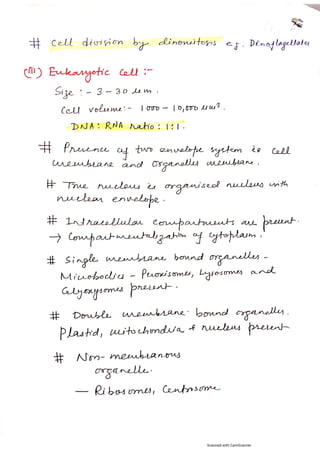 # Cell division by dinomitosis eg. Dinoflagellates
(III) Eukaryotic Cell :-
Size :- 3 - 30 um.
Cell volume:- 1000 - 10,000 um³.
DNA : RNA ratio : 1:1.
# Presence of two envelope system ie Cell
membrane and Organelles membrane.
# True nucleus ie organised nucleus with
nuclear envelope.
# Intracellular compartments are present.
→ Compartmentalization of cytoplasm.
# Single membrane bound organelles -
Microbodies - Peroxisomes, Lysosomes and
Glyoxysomes present.
# Double membrane bound organelles.
Plastid, mitochondria & nucleus present
# Non-membranous
organelle.
— Ribosomes, Centrosome
Scanned with CamScanner